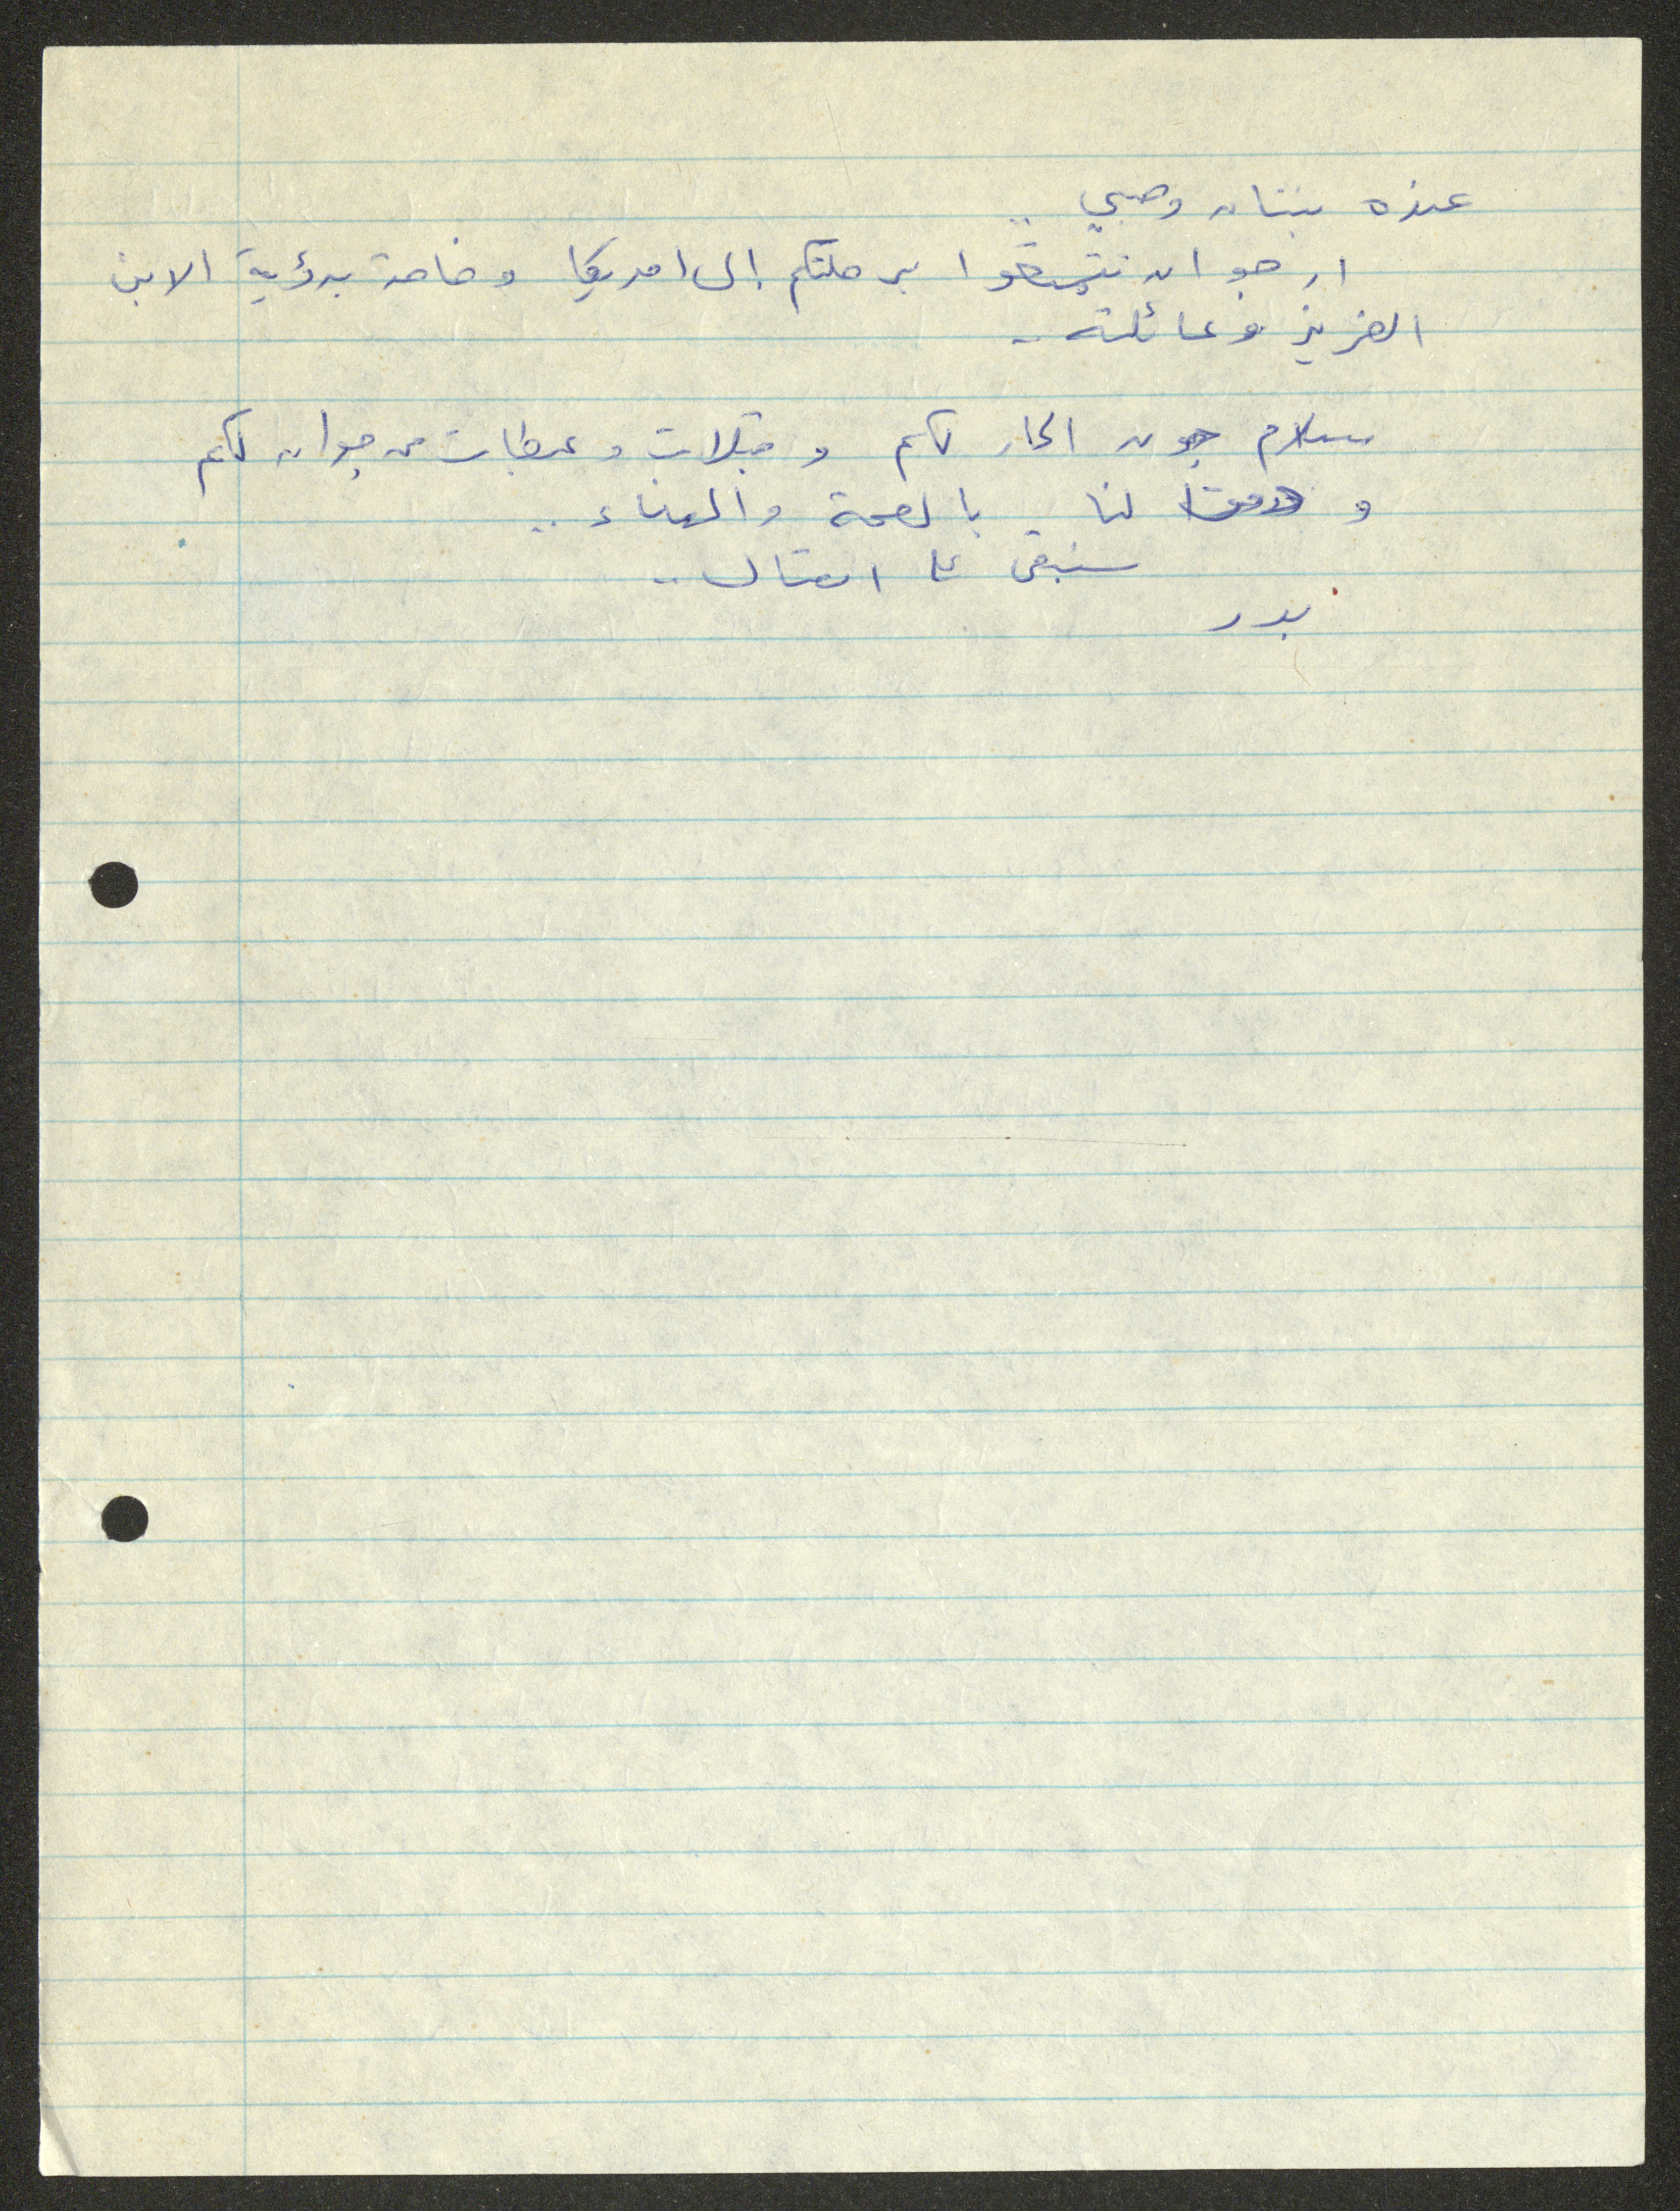 عنده بنتان وصبي ..
ارجو ان تتمتعوا برحلتكم إلى امريكا وخاصة برؤية الابن
العزيز وعائلته ..
سلام جون الحار لكم وقبلات وعبطات من جوان لكم
ودمتم لنا بالصحة والهناء ..
سنبقى على اتصال ..
بدر